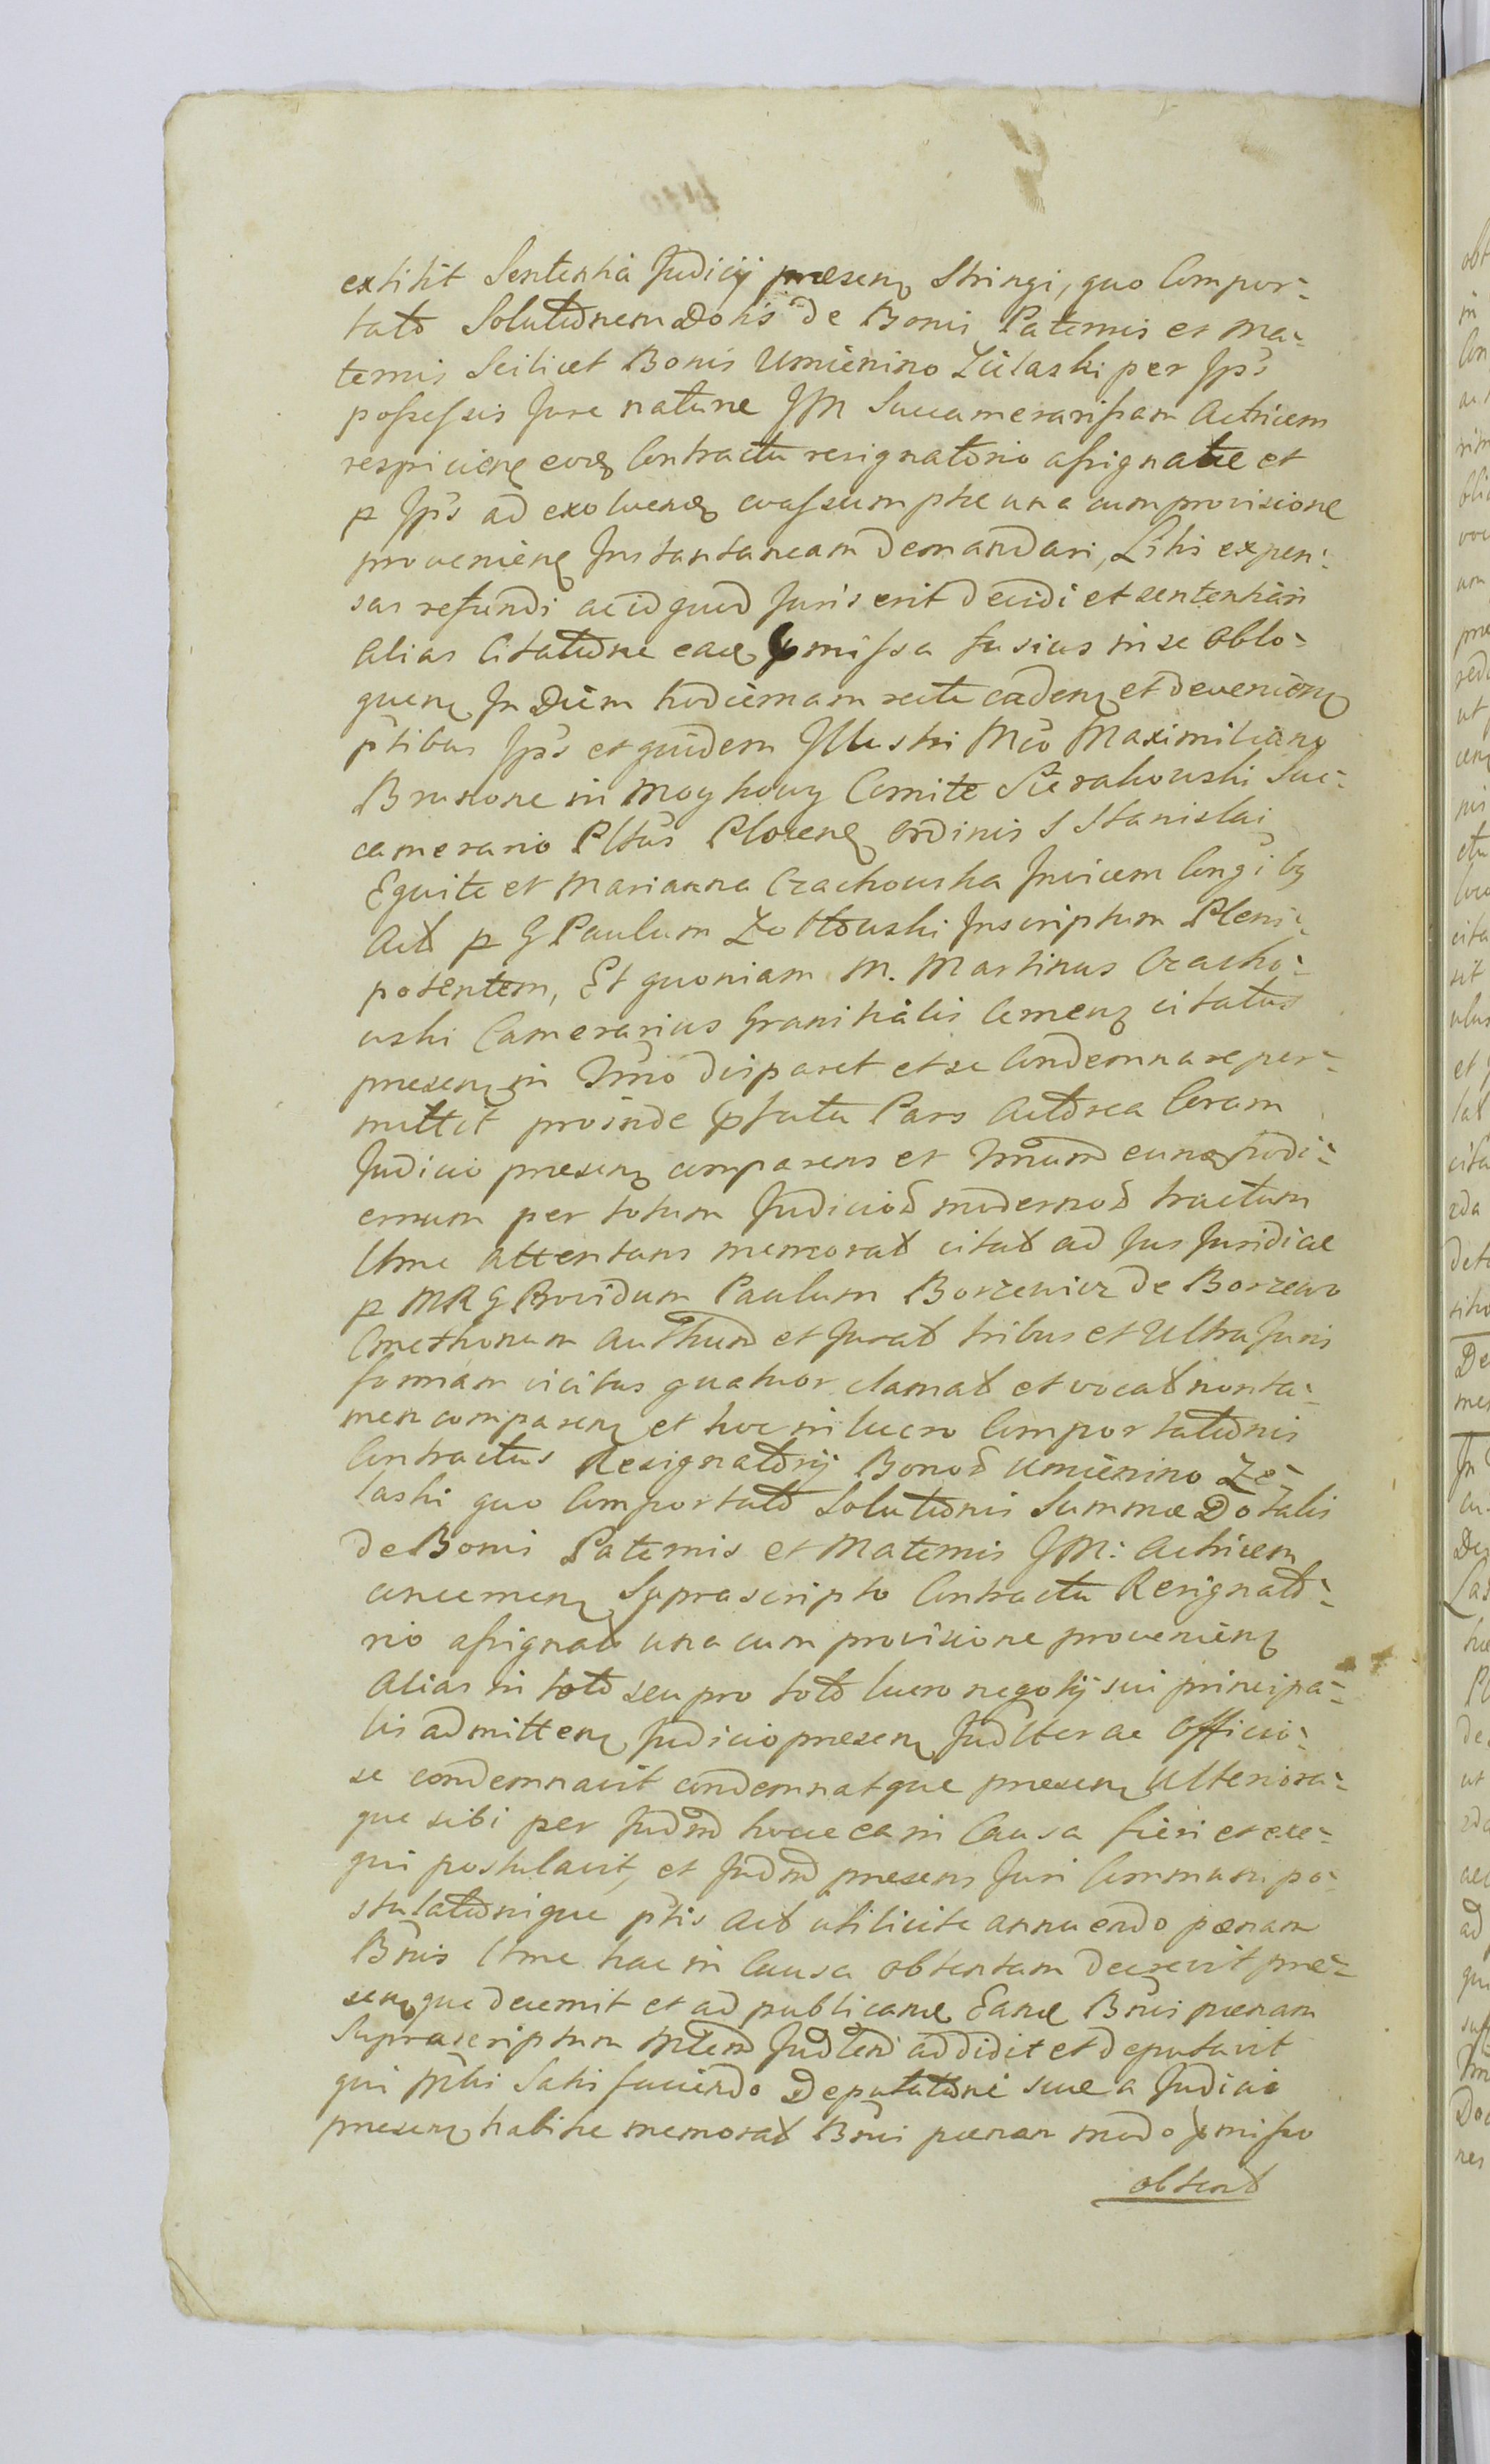 extitit Sententia Judicij praesenꝫ Stringi, quo Compor-
tato Solutionem Dotis de Bonis Paternis et Ma-
ternis Scilicet Bonis Umienino Zielaski per Jps
possessis Jure naturae JM Succamerarissam Actricem
respicienꝫ eodꝫ Contractu resignatorio assignatae et
p Jps ad exolvendꝫ coassumptae una cum provisione
provenienꝫ Instantaneam demandari, Litis expen-
sas refundi ac id quod Juris erit decidi et sententiari
alias Citatione eadꝫ pmissa fusius in se oblo-
quenꝫ In Diem hodiernam recte cadenꝫ et devenienꝫ
ptibus Jps et quidem Illustri Mco Maximiliano
Brunone in Moykowy Comite Sierakowski Suc-
camerario Pltus Plocenꝫ ordinis S Stanislai
Equite et Marianna Czachowska Invicem Congibꝫ
Act p G Paulum Zabłowski Inscriptum Pleni-
potentem, Et quoniam M. Martinus Czacho-
wski Camerarius Granitialis Cernenꝫ citatus
praesenꝫ in Tmno disparet et se Condemnare per-
mittit proinde pfata Pars Actorea Coram
Judicio praesenꝫ comparens et Tmnum eundꝫ hodi-
ernum per totum Judicior modernor tractum
Ctme attentans memorat citat ad Jus Juridice
p MR G Providum Paulum Borzewicz de Borzewo
Cmethonum Authum et Jurat tribus et Ultra Juris
formam vicibus quatuor clamat et vocat non ta-
men comparenꝫ et hoc in lucro Comportationis
Contractus Resignatorij Bonor Umienino Ze-
laski quo Comportato Solutionis Summae Dotalis
de Bonis Paternis et Maternis JM: Actricem
concernenꝫ Suprascripto Contractu Resignato-
rio assignat una cum provisione provenienꝫ
alias in toto seu pro toto lucro negotij sui principa-
lis admittenꝫ Judicio praesenꝫ Judlter ac Officio-
se condemnavit condemnatque praesenꝫ Ulteriora-
que sibi per Judm hocce ea in Causa fieri et exe-
qui postulavit, et Judm praesens Juri Communi po-
stulationique ptis Act utilicite annuendo poenam
Bnis Ctme hac in Causa obtentam decrevit prae-
senꝫque decernit et ad publicandꝫ Eandꝫ Bnis poenam
Suprascriptum Mtem Judlem addidit et deputavit
qui Mtri Satisfaciendo Deputationi suae a Judicio
praesenꝫ habitae memorat Bnis poenam modo pmisso
obtent